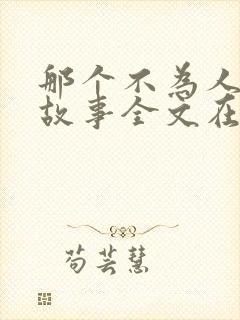 那个不为人
故事全文在
苟芸慧